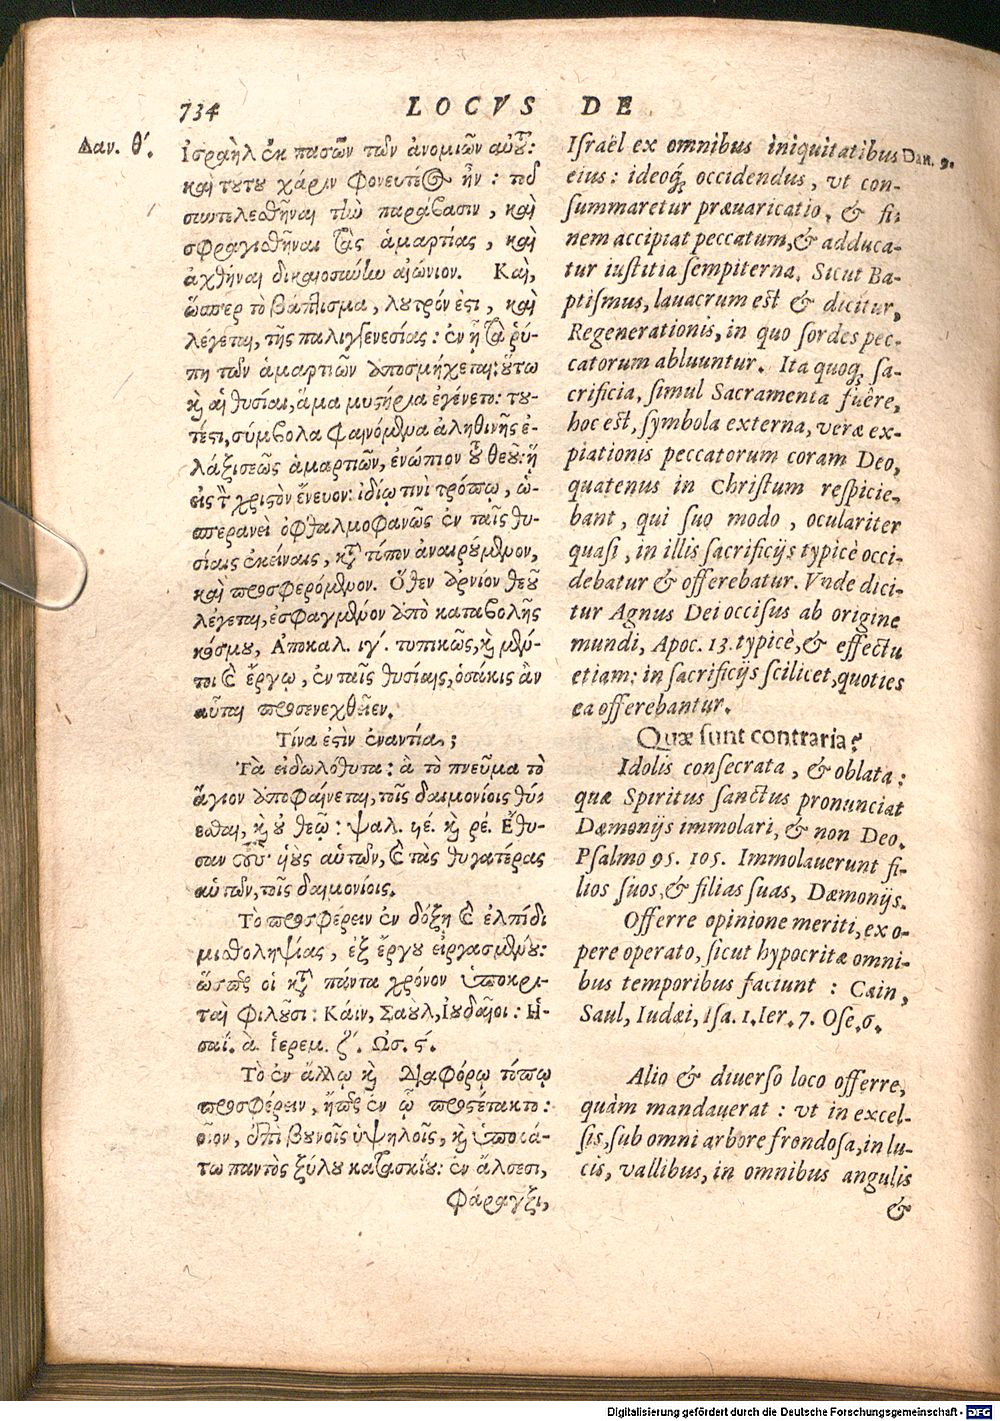 734
LOCVS DE
Δαν. θʹ.
Ἰσραὴλ ἐκ πασῶν τῶν ἀνομιῶν αὐτοῦ:
καὶ τούτου χάριν φονευτέος ἦν: τοῦ
συντελεσθῆναι τὴν παράβασιν, καὶ
σφραγισθῆναι τὰς ἁμαρτίας, καὶ
ἀχθῆναι δικαιοσύνην αἰώνιον. Καὶ,
ὥσπερ τὸ βάπτισμα, λουτρόν ἐστι, καὶ
λέγεται, τῆς παλιγγενεσίας: ἐν ᾗ τὰ ῥύ-
πη τῶν ἁμαρτιῶν ἀποσμήχεται: οὕτω
καὶ αἱ θυσίαι, ἅμα μυστήρια ἐγένετο: του-
τέστι, σύμβολα φαινόμενα ἀληθινῆς ἐ-
λάξισεῶς ἁμαρτιῶν, ἐνώπιον τοῦ θεοῦ: ᾗ
εἰς τὸν χριστὸν ἔνευον: ἰδίῳ τινὶ τρόπῳ, ὡ-
σπερανεὶ ὀφθαλμοφανῶς ἐν ταῖς θυ-
σίαις ἐκείναις, κατὰ τύπον ἀναιρούμενον,
καὶ προσφερόμενον. Ὅθεν ἀρνίον θεοῦ
λέγεται, ἐσφαγμένον ἀπὸ καταβολῆς
κόσμου, Ἀποκαλ. ιγʹ. τυπικῶς, καὶ μέν-
τοι καὶ ἔργῳ, ἐν ταῖς θυσίαις, ὁσάκις ἂν
αὗται προσενεχθεῖεν.
Τίνα ἐστὶν ἐναντία;
Τὰ εἰδωλόθυτα: ἃ τὸ πνεῦμα τὸ
ἅγιον ἀποφαίνεται, τοῖς δαιμονίοις θύ-
εσθαι, καὶ οὐ θεῷ: ψαλ. ϟέ. καὶ ρέ. Ἔθυ-
σαν τοὺς υἱοὺς αὑτῶν, καὶ τὰς θυγατέρας
αὑτῶν, τοῖς δαιμονίοις.
Τὸ προσφέρειν ἐν δόξῃ καὶ ἐλπίδι
μισθοληψίας, ἐξ ἔργου εἰργασμένου:
ὥσπερ οἱ κατὰ πάντα χρόνον ὑποκρι-
ταὶ φιλοῦσι: Κάιν, Σαοὺλ, Ἰουδαῖοι: Ἡ-
σαΐ. ά. Ἱερεμ. ζʹ. Ὡσ. ϛʹ.
Τὸ ἐν ἄλλῳ καὶ διαφόρῳ τόπῳ
προσφέρειν, ἤπερ ἐν ᾧ προσέτακτο:
οἷον, ἐπὶ βουνοῖς ὑψηλοῖς, καὶ ὑποκά-
τω παντὸς ξύλου κατασκίου: ἐν ἄλσεσι,
φάραγξι,
Dan. 9.
Israël ex omnibus iniquitatibus
eius: ideoq; occidendus, vt con-
summaretur præuaricatio, & fi-
nem accipiat peccatum, & adduca-
tur iustitia sempiterna. Sicut Ba-
ptismus, lauacrum est & dicitur,
Regenerationis, in quo sordes pec-
catorum abluuntur. Ita quoq; sa-
crificia, simul Sacramenta fuêre,
hoc est, symbola externa, veræ ex-
piationis peccatorum coram Deo,
quatenus in Christum respicie-
bant, qui suo modo, oculariter
quasi, in illis sacrificijs typicè occi-
debatur & offerebatur. Vnde dici-
tur Agnus Dei occisus ab origine
mundi, Apoc. 13. typicè, & effectu
etiam: in sacrificijs scilicet, quoties
ea offerebantur.
Quæ sunt contraria?
Idolis consecrata, & oblata:
quæ Spiritus sanctus pronunciat
Dæmonijs immolari, & non Deo.
Psalmo 95. 105. Immolauerunt fi-
lios suos, & filias suas, Dæmonijs.
Offerre opinione meriti, ex o-
pere operato, sicut hypocritæ omni-
bus temporibus faciunt: Cain,
Saul, Iudæi, Isa. 1. Ier. 7. Ose. 6.
Alio & diuerso loco offerre,
quàm mandauerat: vt in excel-
sis, sub omni arbore frondosa, in lu-
cis, vallibus, in omnibus angulis
&
Digitalisierung gefördert durch die Deutsche Forschungsgemeinschaft - DFG